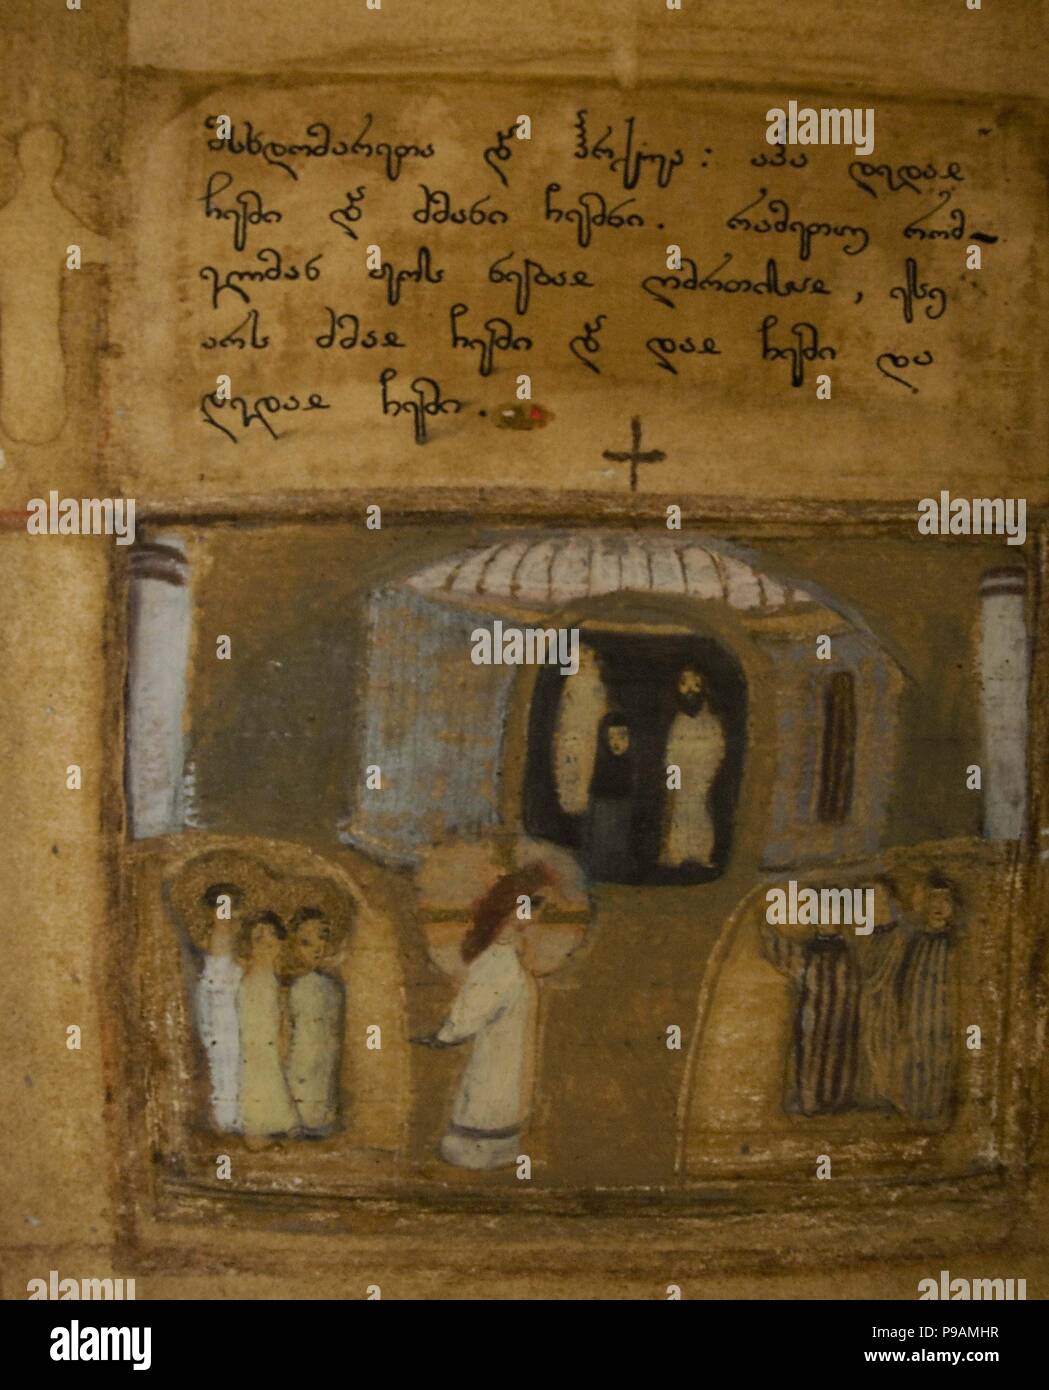 მსხდომარეთა და ჰრქუა: აჰა დედაჲ
ჩემი და ძმანი ჩემნი. რამეთუ რომ-
ელმან ყოს ნებაჲ ღმრთისაჲ, ესე
არს ძმაჲ ჩემი და დაჲ ჩემი და
დედაჲ ჩემი.
alamy
alamy
alamy
alamy
alamy
alamy
alamy
alamy
Image ID: P9AMHR
www.alamy.com